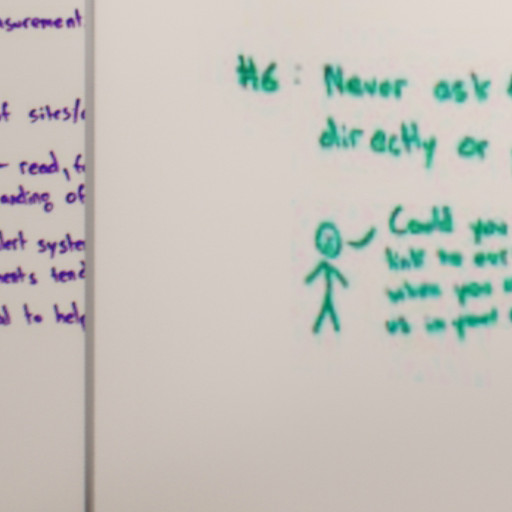 asurement
f sites/
- read, f
anding of
lert syste
ents tend
al to help
#6: Never ask
directly or
Could you
link to our
when you
us in your